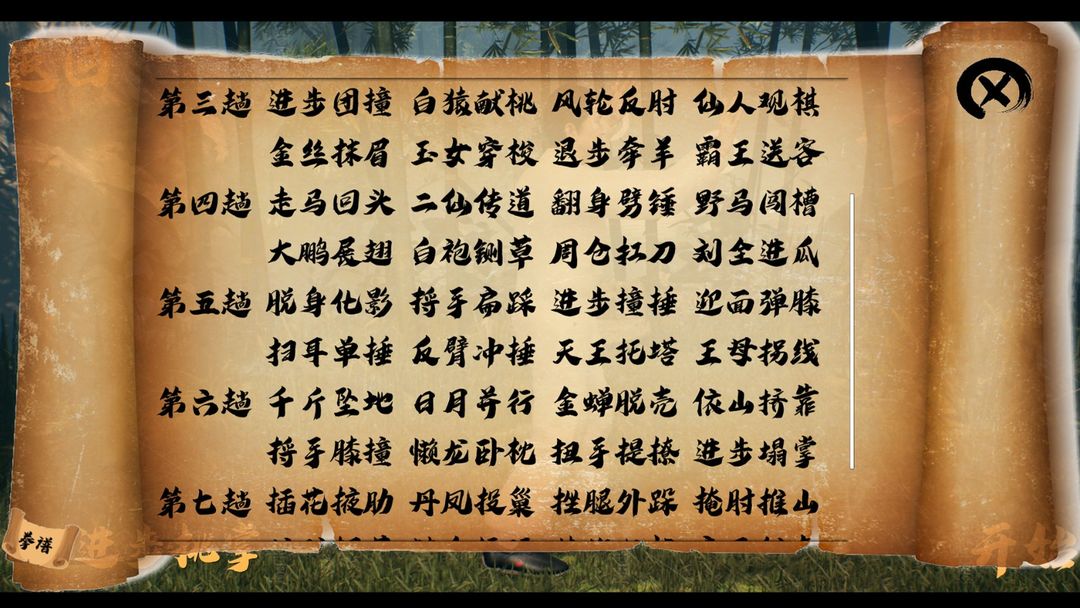 第三趟 进步团撞 白猿献桃 风轮反肘 仙人观棋
金丝抹眉 玉女穿梭 退步牵羊 霸王送客
第四趟 走马回头 二仙传道 翻身劈锤 野马闯槽
大鹏展翅 白袍铡草 周仓扛刀 刘全进瓜
第五趟 脱身化影 捋手扁踩 进步撞捶 迎面弹膝
扫耳单捶 反臂冲捶 天王托塔 王母拐线
第六趟 千斤坠地 日月并行 金蝉脱壳 依山挤靠
捋手膝撞 懒龙卧枕 扭手提撩 进步塌掌
第七趟 插花掖肋 丹凤投巢 挫腿外跺 掩肘推山
拳谱
进步
开始